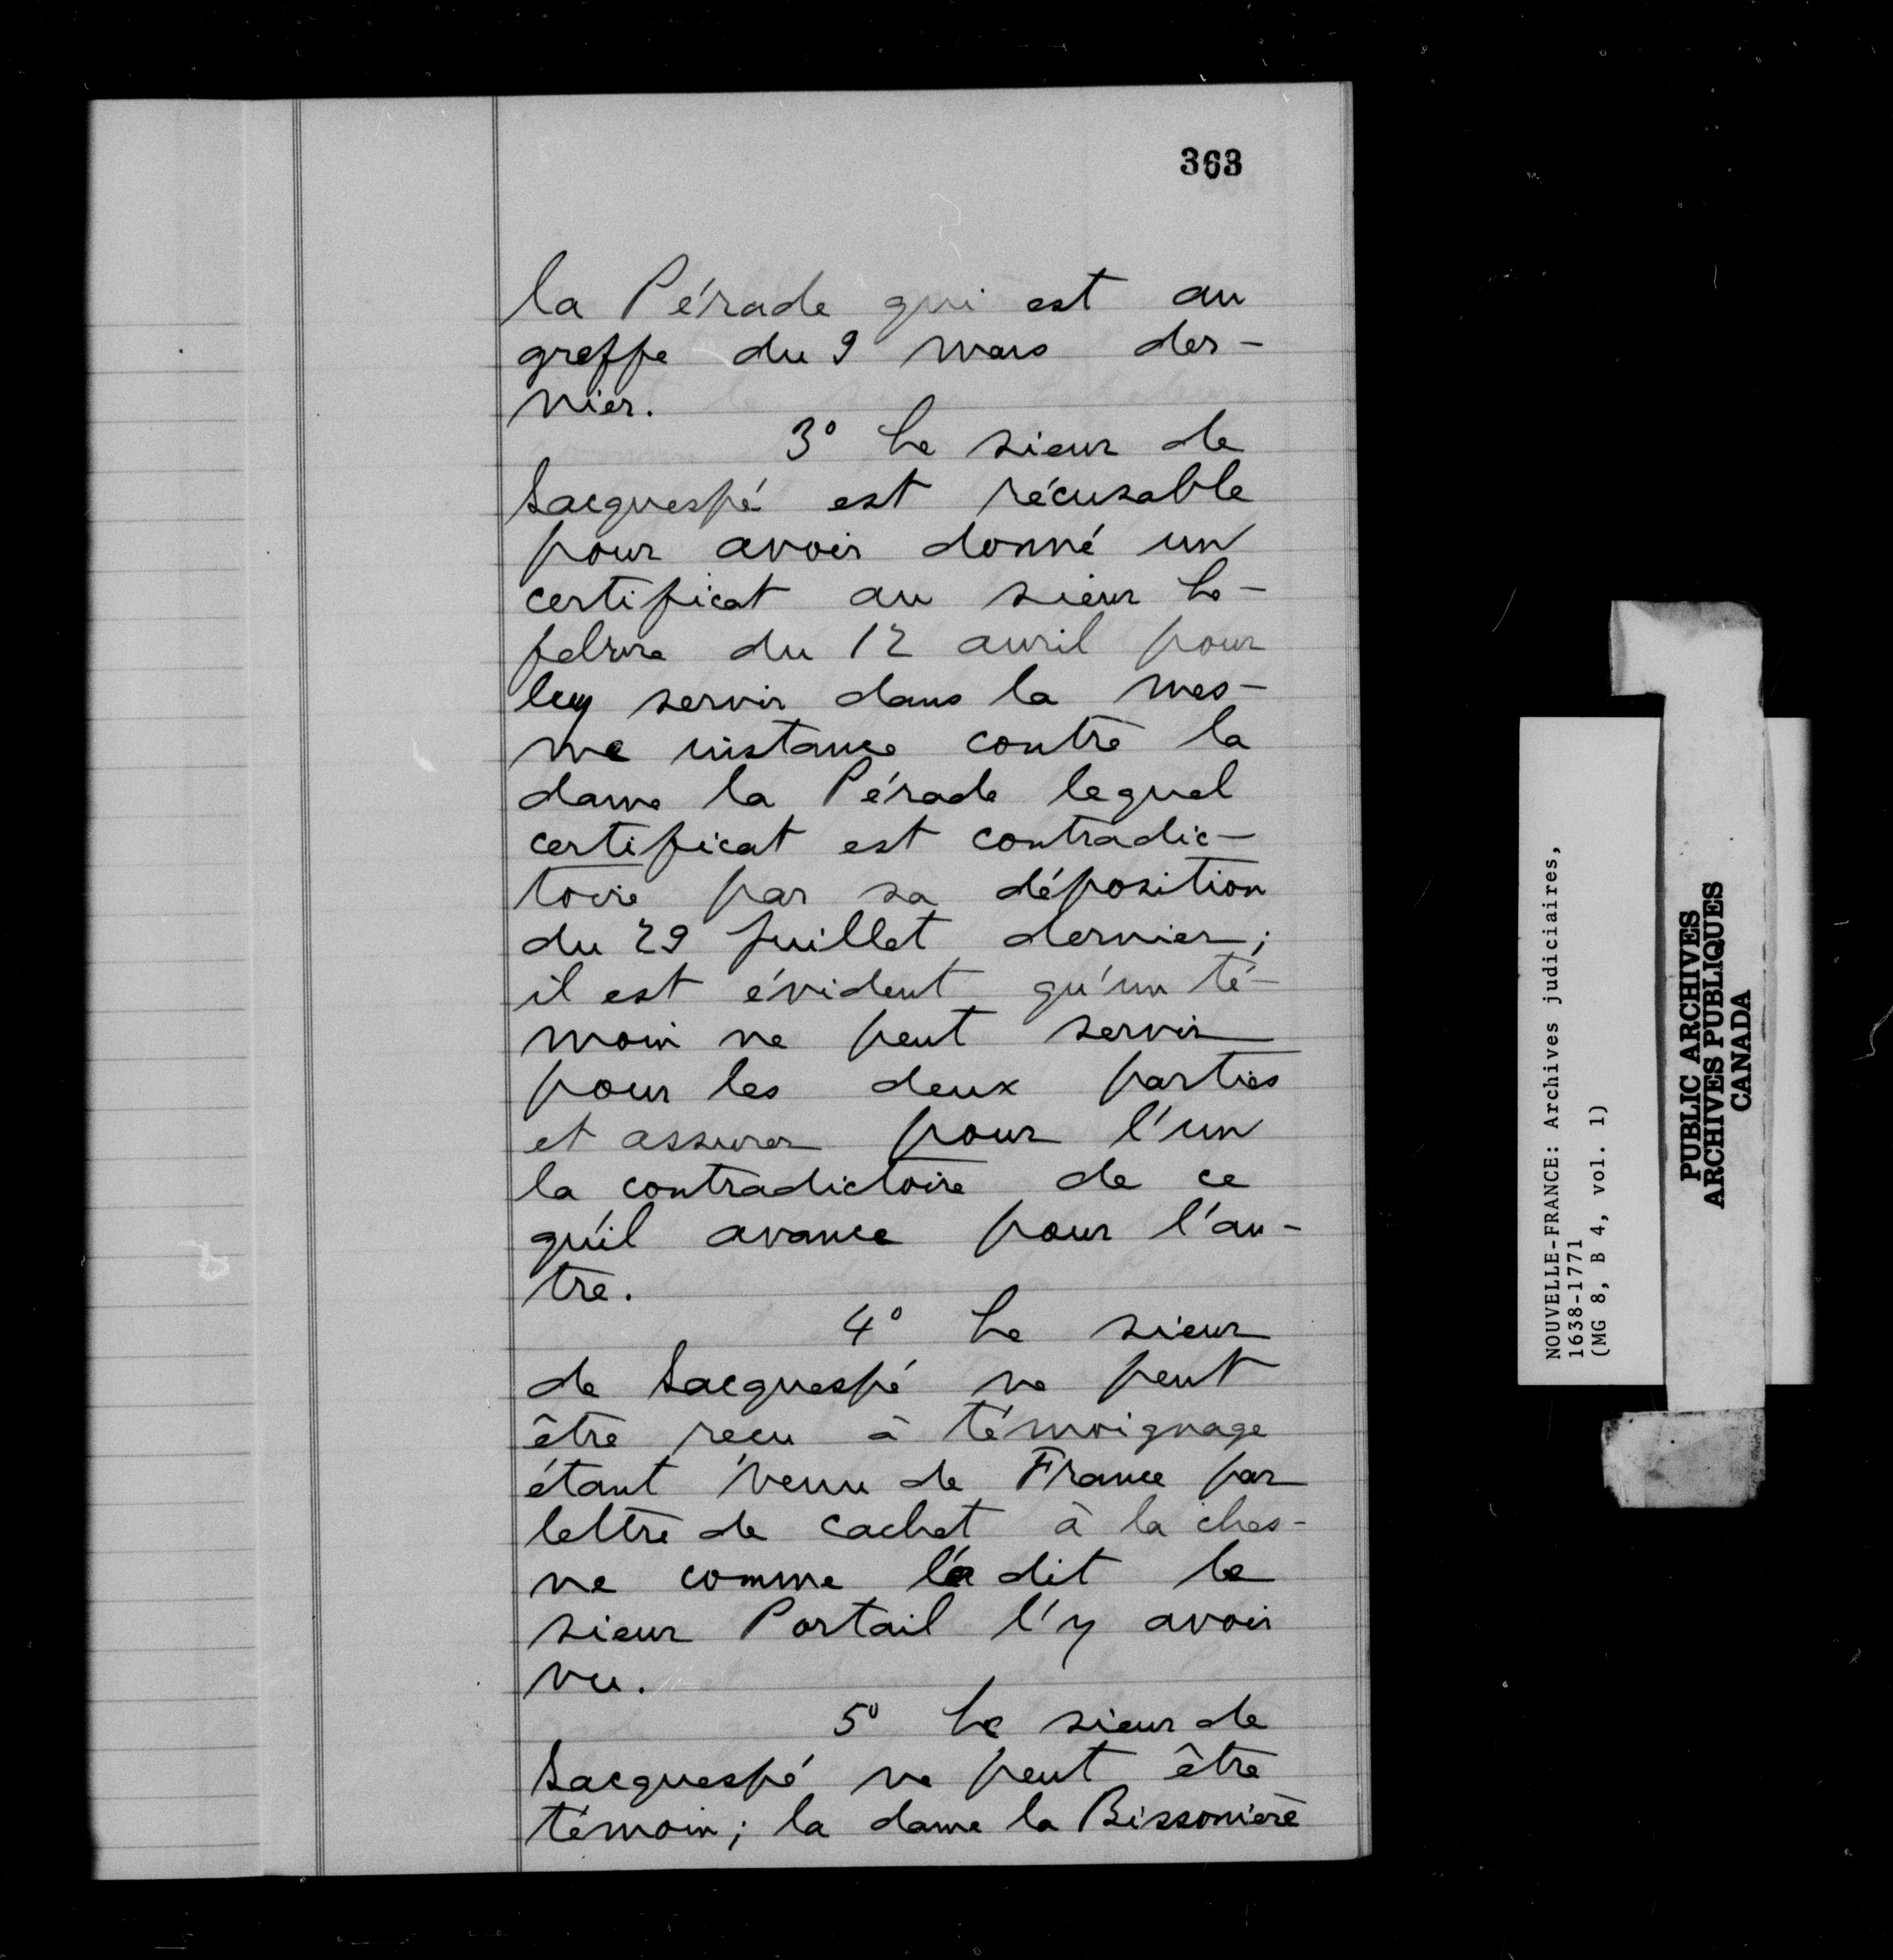 363
la Pérade qui est au
greffe du 9 mars der-
nier.
3° Le sieur de
Sacquespé est récusable
pour avoir donné un
certificat au sieur Le-
febvre du 12 avril pour
luy servir dans la mes-
me instance contre la
dame la Pérade lequel
certificat est contradic-
toire par sa déposition
du 29 juillet dernier;
il est évident qu'un té-
moin ne peut servir
pour les deux parties
et assurer pour l'un
la contradictoire de ce
qu'il avance pour l'au-
tre.
4° Le sieur
de Sacquespé ne peut
être recu à témoignage
étant venu de France par
lettre de cachet à la ches-
ne comme l'a dit le
sieur Portail l'y avoir
vu.
5° Le sieur de
Sacquespé ne peut être
témoin; la dame la Bissonière
NOUVELLE-FRANCE: Archives judiciaires,
1638-1771
(MG 8, B 4, vol. 1)
PUBLIC ARCHIVES
ARCHIVES PUBLIQUES
CANADA